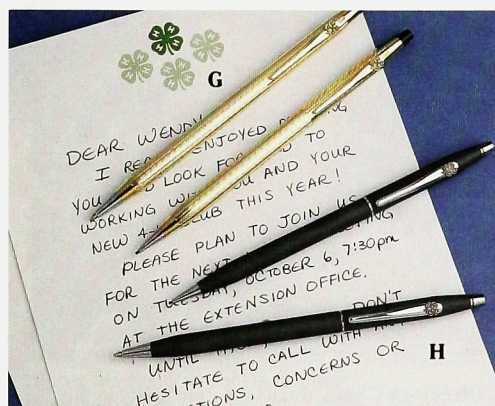 G
DEAR WENDY
I ENJOYED
YOU LOOK TO
WORKING WITH YOU AND YOUR
NEW 4-H CLUB THIS YEAR!
PLEASE PLAN TO JOIN US
FOR THE NEXT
ON TUESDAY, OCTOBER 6, 7:30pm
AT THE EXTENSION OFFICE.
UNTIL DON'T
HESITATE TO CALL WITH
CONCERNS OR
H